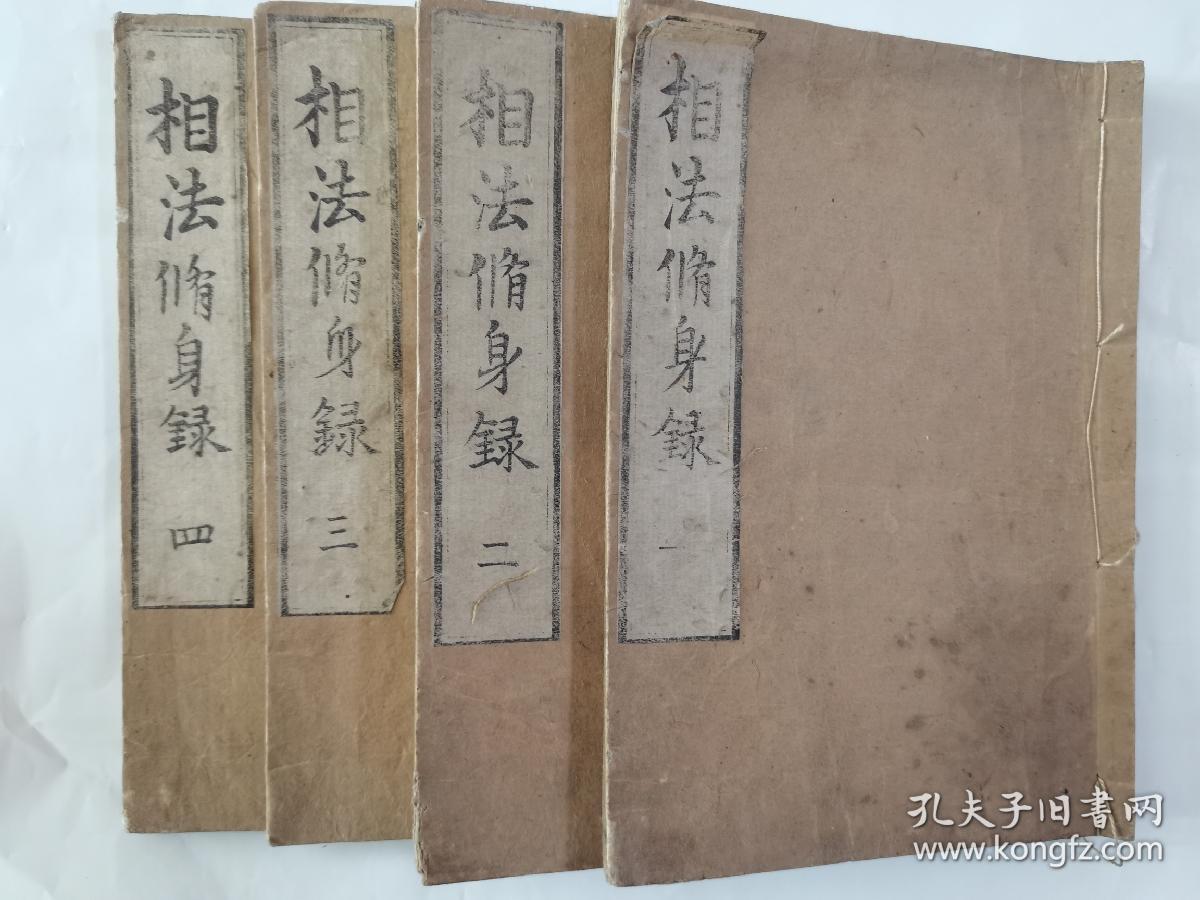 相法脩身録 一
相法脩身録 二
相法脩身録 三
相法脩身録 四
孔夫子旧书网
www.kongfz.com